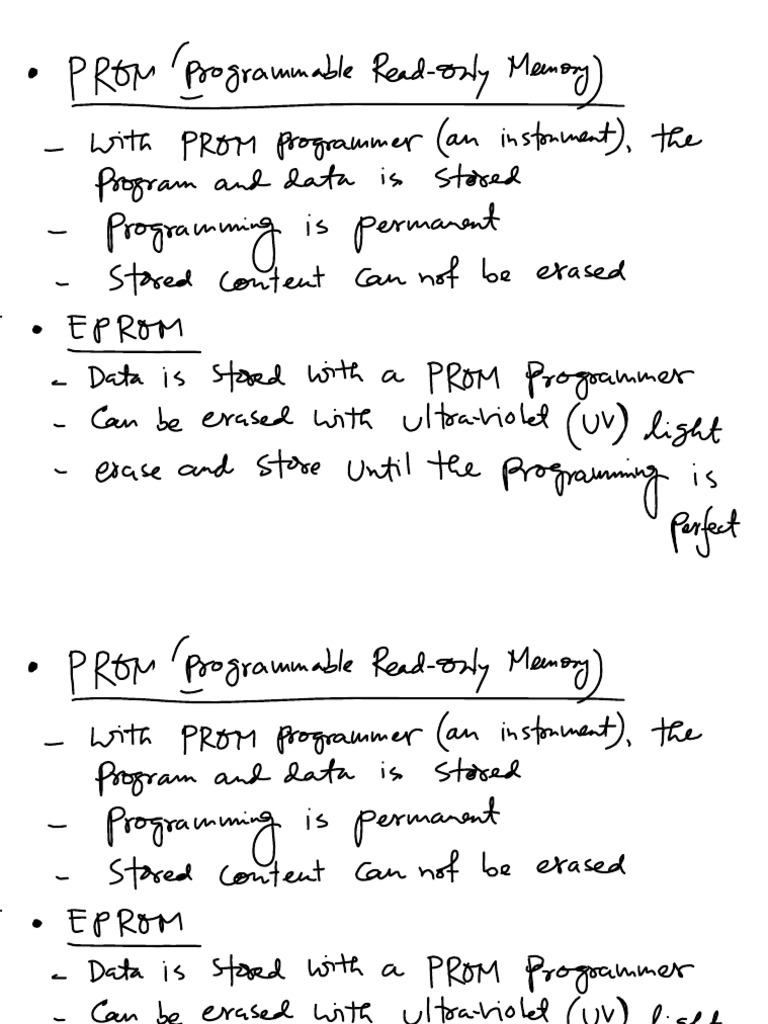 • PROM (Programmable Read-only Memory)
- With PROM programmer (an instrument), the
Program and data is stored
- Programming is permanent
- Stored content can not be erased
• EPROM
- Data is stored with a PROM Programmer
- Can be erased with ultra-violet (UV) light
- erase and store until the programming is
perfect
• PROM (Programmable Read-only Memory)
- With PROM programmer (an instrument), the
Program and data is stored
- Programming is permanent
- Stored content can not be erased
• EPROM
- Data is stored with a PROM Programmer
- Can be erased with ultra-violet (UV) light